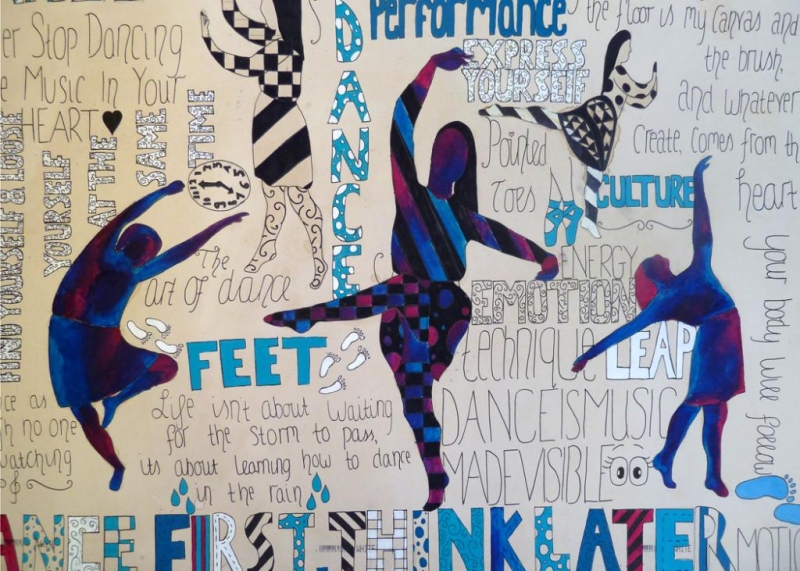 Performance
er Stop Dancing
e Music In Your
HEART
DANCE
EXPRESS
YOURSELF
the floor is my canvas and
the brush,
and whatever
Create, Comes from th
heart
YOURSELF & LOOSE
YOURSELF
AT THE
SAME
TIME
Pointed
Toes
CULTURE
The
art of dance
ENERGY
EMOTION
technique
LEAP
your body will follow
FEET
Life isn't about waiting
for the storm to pass,
its about learning how to dance
in the rain
ce as
h no one
watching
DANCE IS MUSIC
MADE VISIBLE
ANCE FIRST, THINK LATER
MOTIO